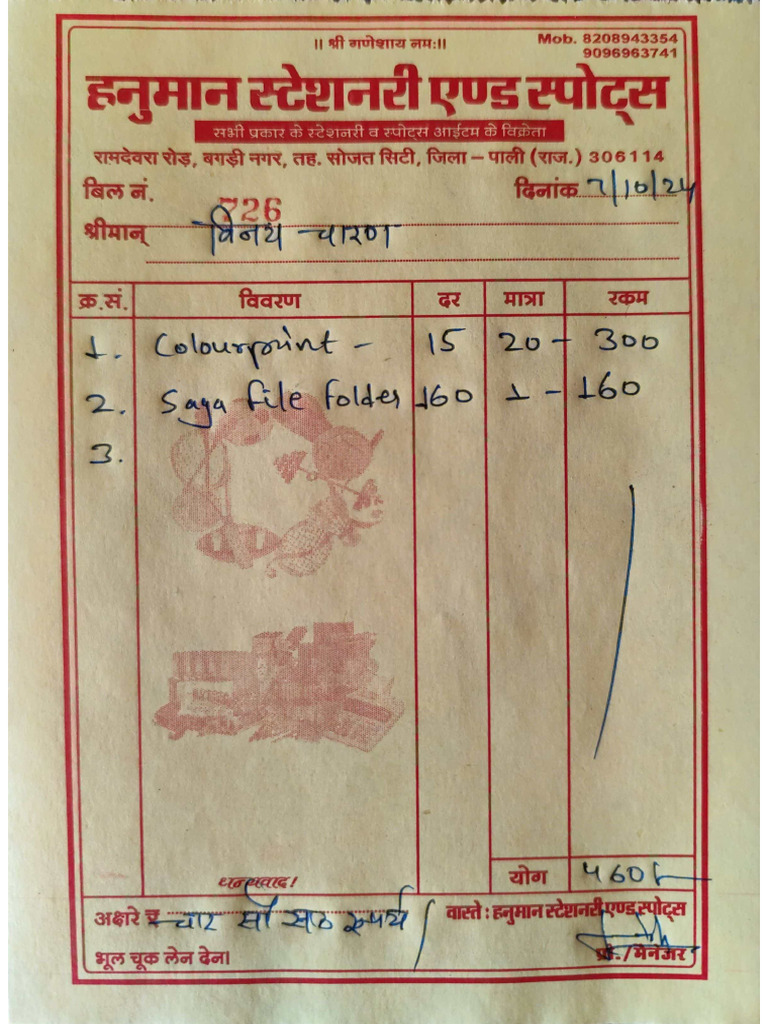 ।। श्री गणेशाय नमः।।
Mob. 8208943354
9096963741
हनुमान स्टेशनरी एण्ड स्पोट्स
सभी प्रकार के स्टेशनरी व स्पोट्स आईटम के विक्रेता
रामदेवरा रोड़, बगड़ी नगर, तह. सोजत सिटी, जिला – पाली (राज.) 306114
बिल नं. 726 दिनांक 7/10/24
श्रीमान् विनय चारण
क्र.सं. विवरण दर मात्रा रकम
1. Colourprint – 15 20 – 300
2. Saga File Folder 160 1 – 160
3.
धन्यवाद!
योग 460/-
अक्षरे चार सौ साठ रूपये/
वास्ते : हनुमान स्टेशनरी एण्ड स्पोट्स
भूल चूक लेन देन। प्रो./मैनेजर